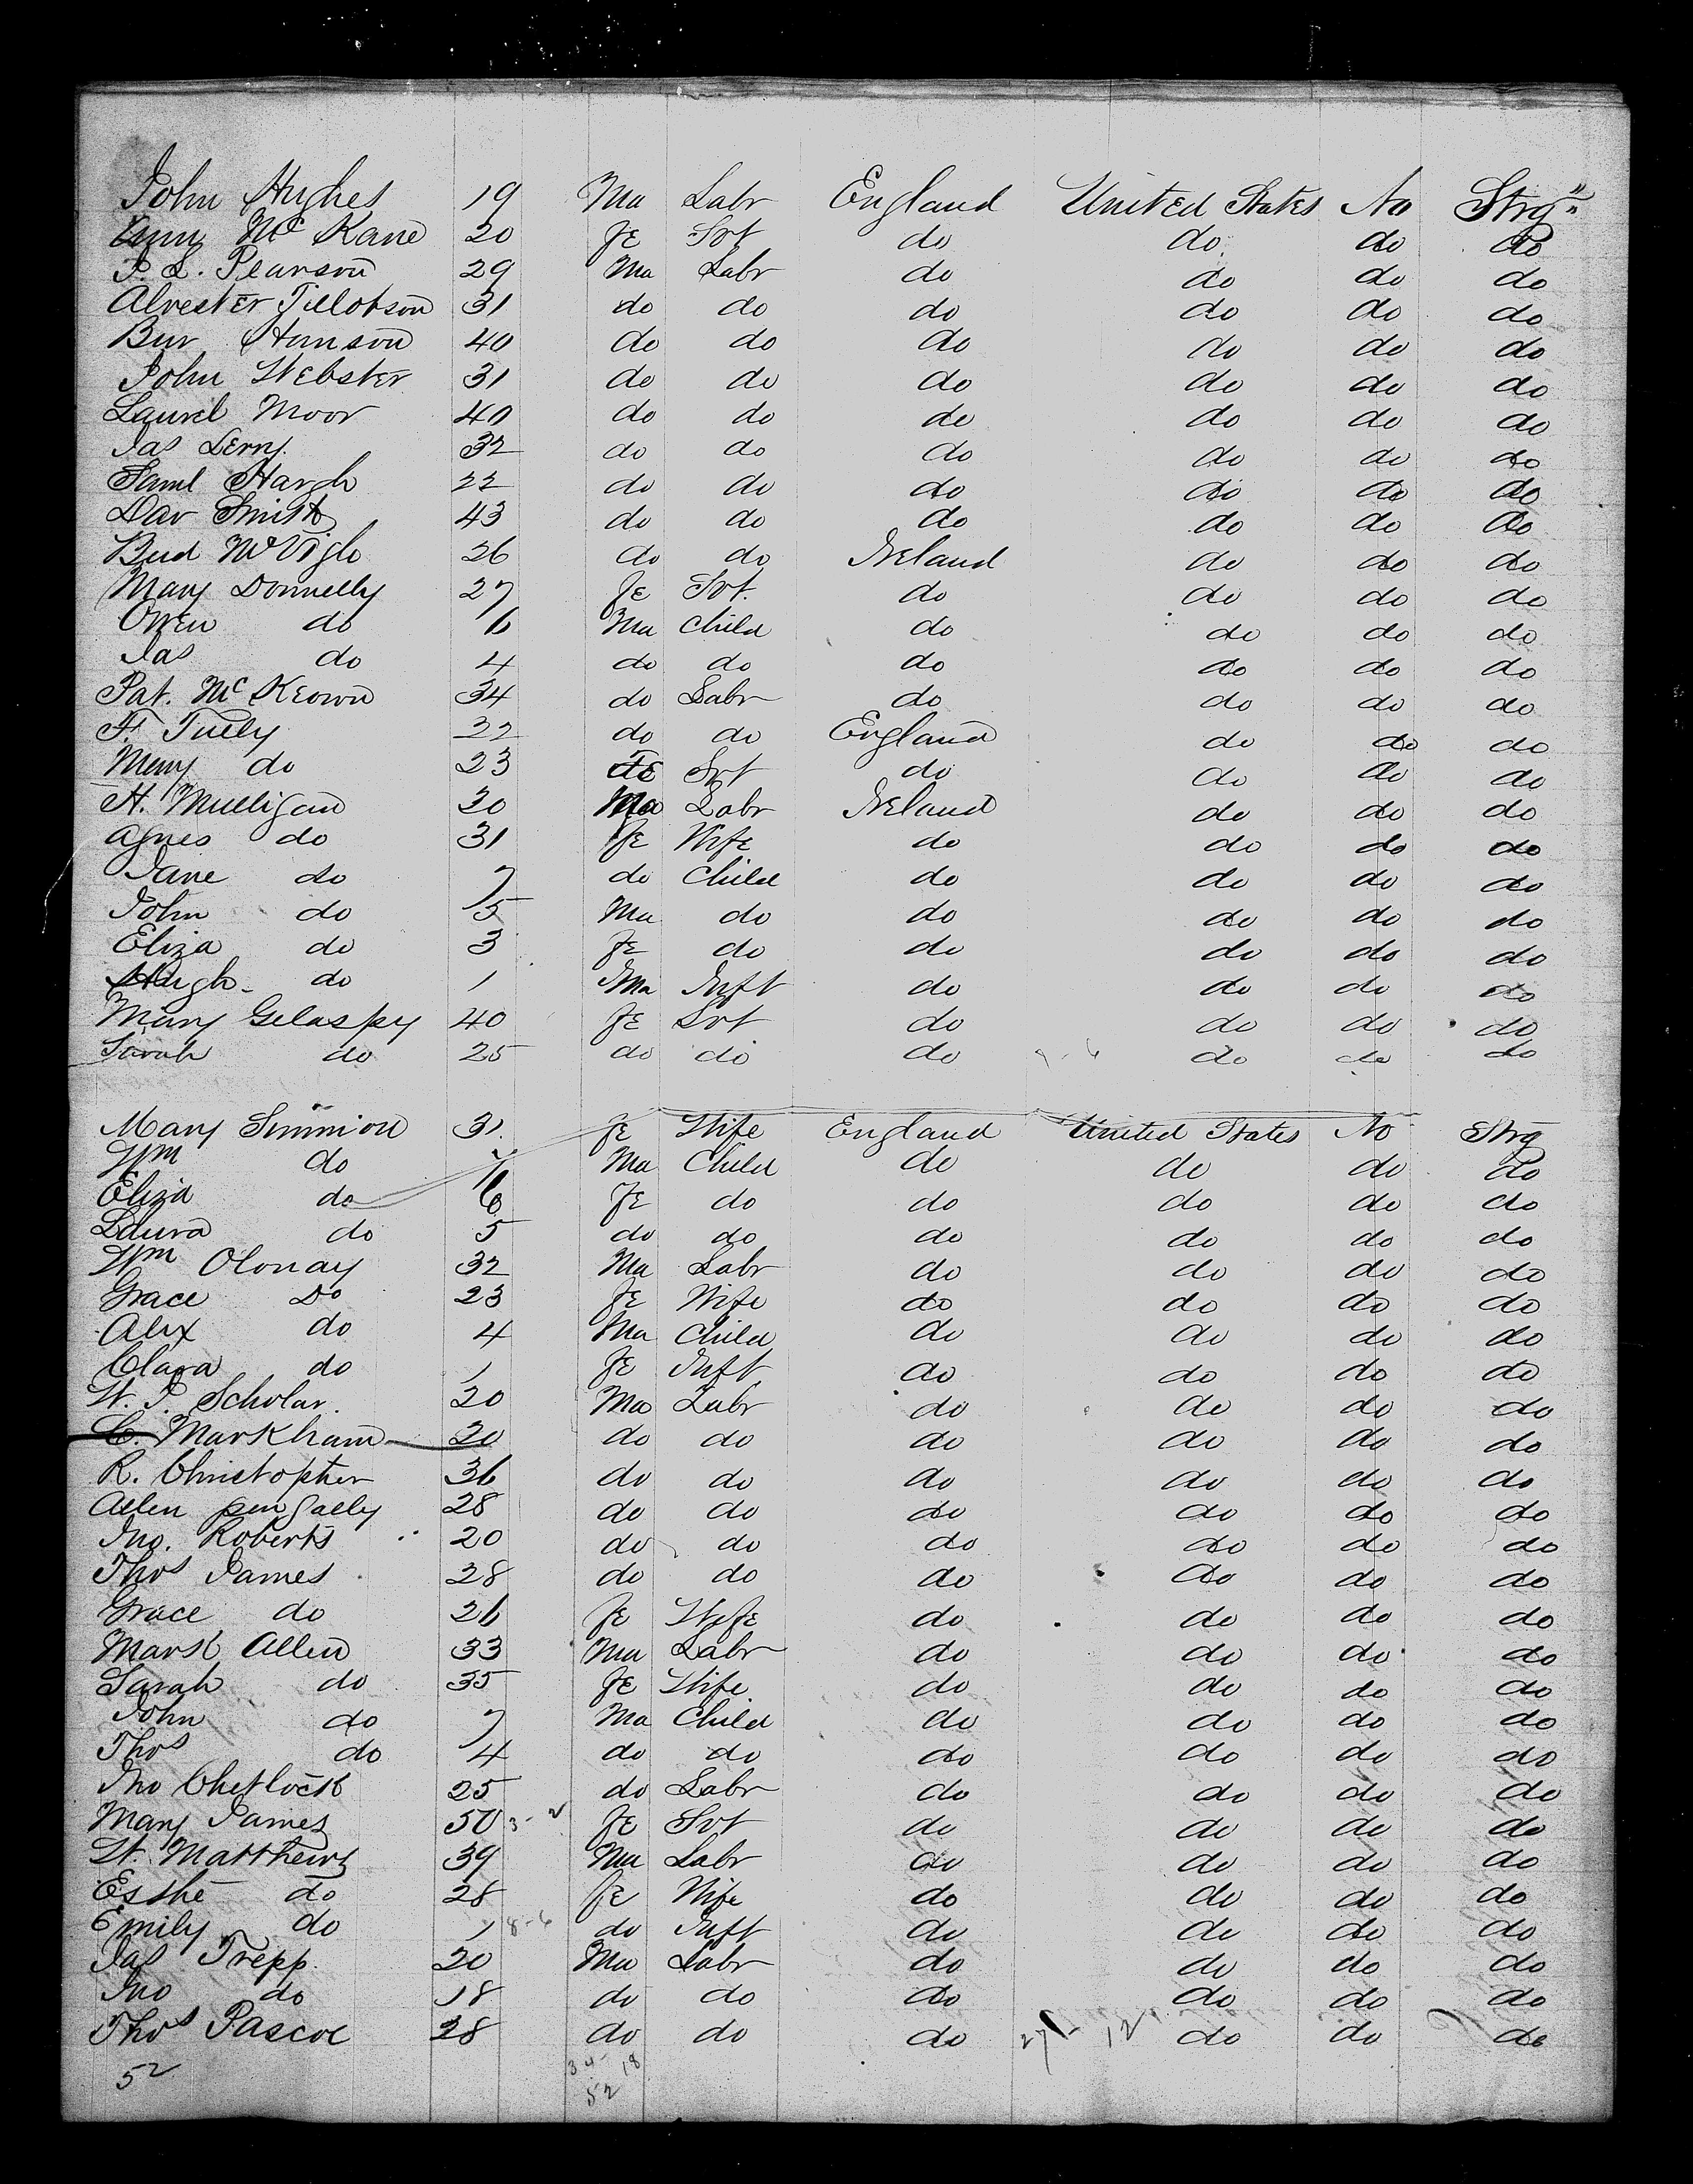 John Hughes 19 Ma Labr England United States No Strg"
Mc Kane 20 Fe Svt do do do do
Pearson 29 Ma Labr do do do do
Alvester Tillotson 31 do do do do do do
40 do do do do do do
John Webster 31 do do do do do do
Laurel Moor 40 do do do do do do
Jas Lerry 32 do do do do do do
Saml Hargh 22 do do do do do do
Dav Smith 43 do do do do do do
26 do do Ireland do do do
Mary Donnelly 27 Fe Svt. do do do do
Owen do 6 Ma Child do do do do
Jas do 4 do do do do do do
Pat. Mc Keown 34 do Labr do do do do
F. Tully 22 do do England do do do
do 23 Fe Svt do do do do
H. Mulligan 30 Ma Labr Ireland do do do
Agnes do 31 Fe Wife do do do do
Jane do 7 do Child do do do do
John do 5 Ma do do do do do
Eliza do 3 Fe do do do do do
Hugh do 1 Ma Inft do do do do
Mary Gelaspy 40 Fe Svt do do do do
Sarah do 25 do do do do do do
Mary Simmion 31 Fe Wife England United States No Strg
Wm do 7 Ma Child do do do do
Eliza do 6 Fe do do do do do
Laura do 5 do do do do do do
Wm Olonay 32 Ma Labr do do do do
Grace Do 23 Fe Wife do do do do
Alex do 4 Ma Child do do do do
Clara do 1 Fe Inft do do do do
W. P. Scholar. 20 Ma Labr do do do do
C. Markham 20 do do do do do do
R. Christopher 36 do do do do do do
Allen pengally 28 do do do do do do
Jno. Roberts 20 do do do do do do
Thos James 28 do do do do do do
Grace do 26 Fe Wife do do do do
Mark Allen 33 Ma Labr do do do do
Sarah do 35 Fe Wife do do do do
John do 7 Ma Child do do do do
Thos do 4 do do do do do do
Jno Chetlock 25 do Labr do do do do
Mary James 50 Fe Svt do do do do
W. Matthews 39 Ma Labr do do do do
Esthe do 28 Fe Wife do do do do
Emily do 1 8-6 do Inft do do do do
Jas Trepp. 20 Ma Labr do do do do
Jno do 18 do do do do do do
Thos Pascoe 28 do do do do do do
52 34 18
52